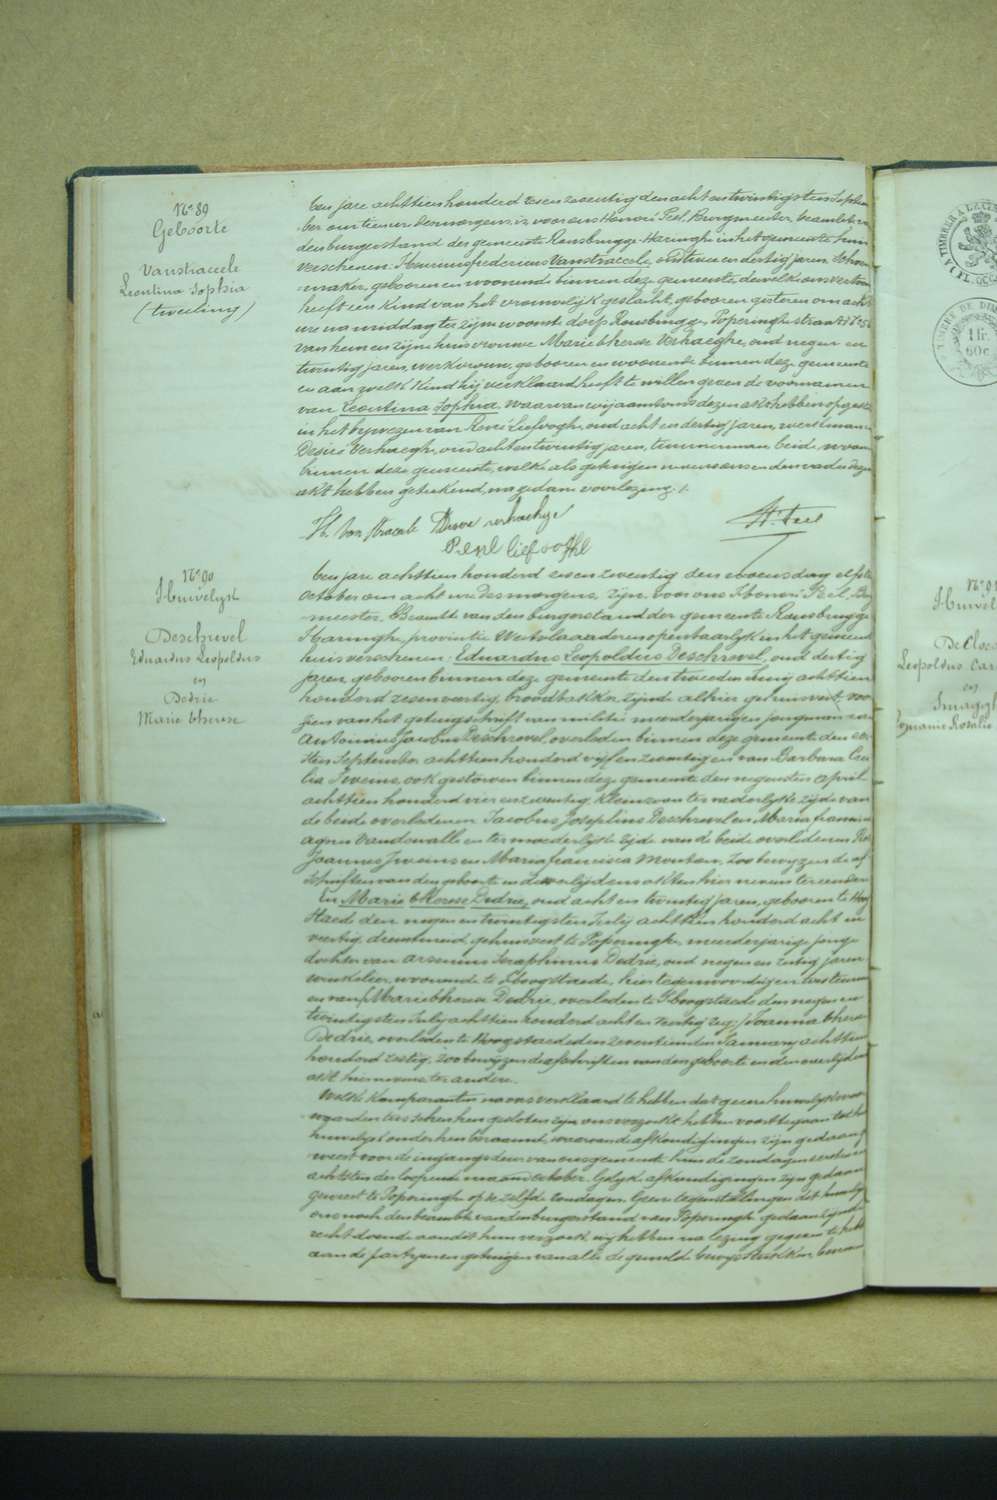 No 89
Geboorte
Vanstraceele
Leontina Sophia
(tweeling)
Ten jare achttien honderd zes en zeventig den acht en twintigsten Septem
ber om tien ure voor ons Henri Peel, Burgmeester, beambte v
den burgerstand der gemeente Rousbrugge-Haringhe in het gemeente huis
verschenen: Henricus fredericus Vanstraceele, oud twee en dertig jaren, schoen
maker, geboren en woonende binnen deze gemeente, dewelke ons vertoon
heeft een kind van het vrouwelijk geslacht, geboren gisteren om acht
ure na middag te zijne woonst dorp Rousbrugge, Poperinghestraat No 56
van hem en zijne huisvrouwe Marie therese Verhaeghe, oud negen en
twintig jaren, werkvrouw, geboren en woonende binnen deze gemeente
en aan welk kind hij verklaard heeft te willen geven de voornamen
van Leontina Sophia. Waarvan wij aanstonds dezen akt hebben opgeste
in het bijwezen van René Liefooghe, oud acht en dertig jaren, werkman en
Désiré Verhaeghe, oud acht en twintig jaren, timmerman beide woonen
binnen deze gemeente, welke als getuigen nevens ons en den vader dezen
akt hebben geteekend, na gedane voorlezing./.
H. Van straceele Desire verhaeghe
H. Peel
René liefooghe
No 90
Huwelyk
Deschrevel
Eduardus Leopoldus
en
Dedrie
Marie therese
Ten jare achttien honderd zes en zeventig den woensdag elfste
october om acht ure des morgens, zijn voor ons Honoré Peel, Bur
meester, Beambte van den burgerstand der gemeente Rousbrugge
Haringhe, provintie Westvlaanderen openbaarlyk in het gemeente
huis verschenen: Eduardus Leopoldus Deschrevel, oud dertig
jaren geboren binnen deze gemeente den tweeden Juny achttien
honderd zes en veertig, broodbakker, zijnde alhier gehuisvest, voor
zien van het getuigschrift van militie meerderjarigen jongman van
Antonius Jacobus Deschrevel, overleden binnen deze gemeente den
sten September achttien honderd vijf en zeventig en van Barbara Ceci
lia Sweins, ook gestorven binnen deze gemeente den negensten April
achttien honderd vier en zeventig, kleinzoon ter vaderlyke zijde van
de beide overledenen Jacobus Josephus Deschrevel en Maria francisca
agnes Vandewalle en ter moederlyke zijde van de beide overledenen
Joannes Sweins en Maria francisca Moutton, Zoo bewyzen de af
schriften van den geboorte en de overlijdens akten hier nevens
En Marie therese Dedrie, oud acht en twintig jaren, geboren te Hoog
staede den negen en twintigsten July achttien honderd acht en
veertig, dienstmeid gehuisvest te Poperinghe, meerderjarige jonge
dochter van Arsenius Seraphinus Dedrie, oud negen en zestig jaren
winkelier, woonende te Hoogstaede, hier tegenwoordig en toestemmen
en van Marie therese Dedrie, overleden te Hoogstaede den negen en
twintigsten July achttien honderd acht en veertig zeg: Joanna theresa
Dedrie, overleden te Hoogstaede den zeventienden January achttien
honderd zestig, zoo bewijzen de afschriften van den geboorte en den overlijdens
akt hier nevens
Welke komparanten na ons verklaard te hebben dat geene huwelyksvoor
waarden tusschen hen gesloten zijn, ons verzocht hebben voort te gaan tot het
huwelyk onder hen beraamd, waarvan de afkondigingen zijn gedaan
weest voor de ingangdeur van ons gemeente huis de zondagen eersten en
achtsten der loopende maand october. Gelyke afkondigingen zijn gedaan
geweest te Poperinghe op de zelfde zondagen. Geene tegenstellingen dit huwelyk
ons noch den beambte van den burgerstand van Poperinghe gedaan zijnde
recht doende aan dit hun verzoek, wy hebben na lezing gegeven te hebben
aan de partyen en getuigen van alle de gemelde bewys stukken
No 91
Huwel
De Cloe
Leopoldus Car
en
Romanie Rosalie
1 fr.
60c